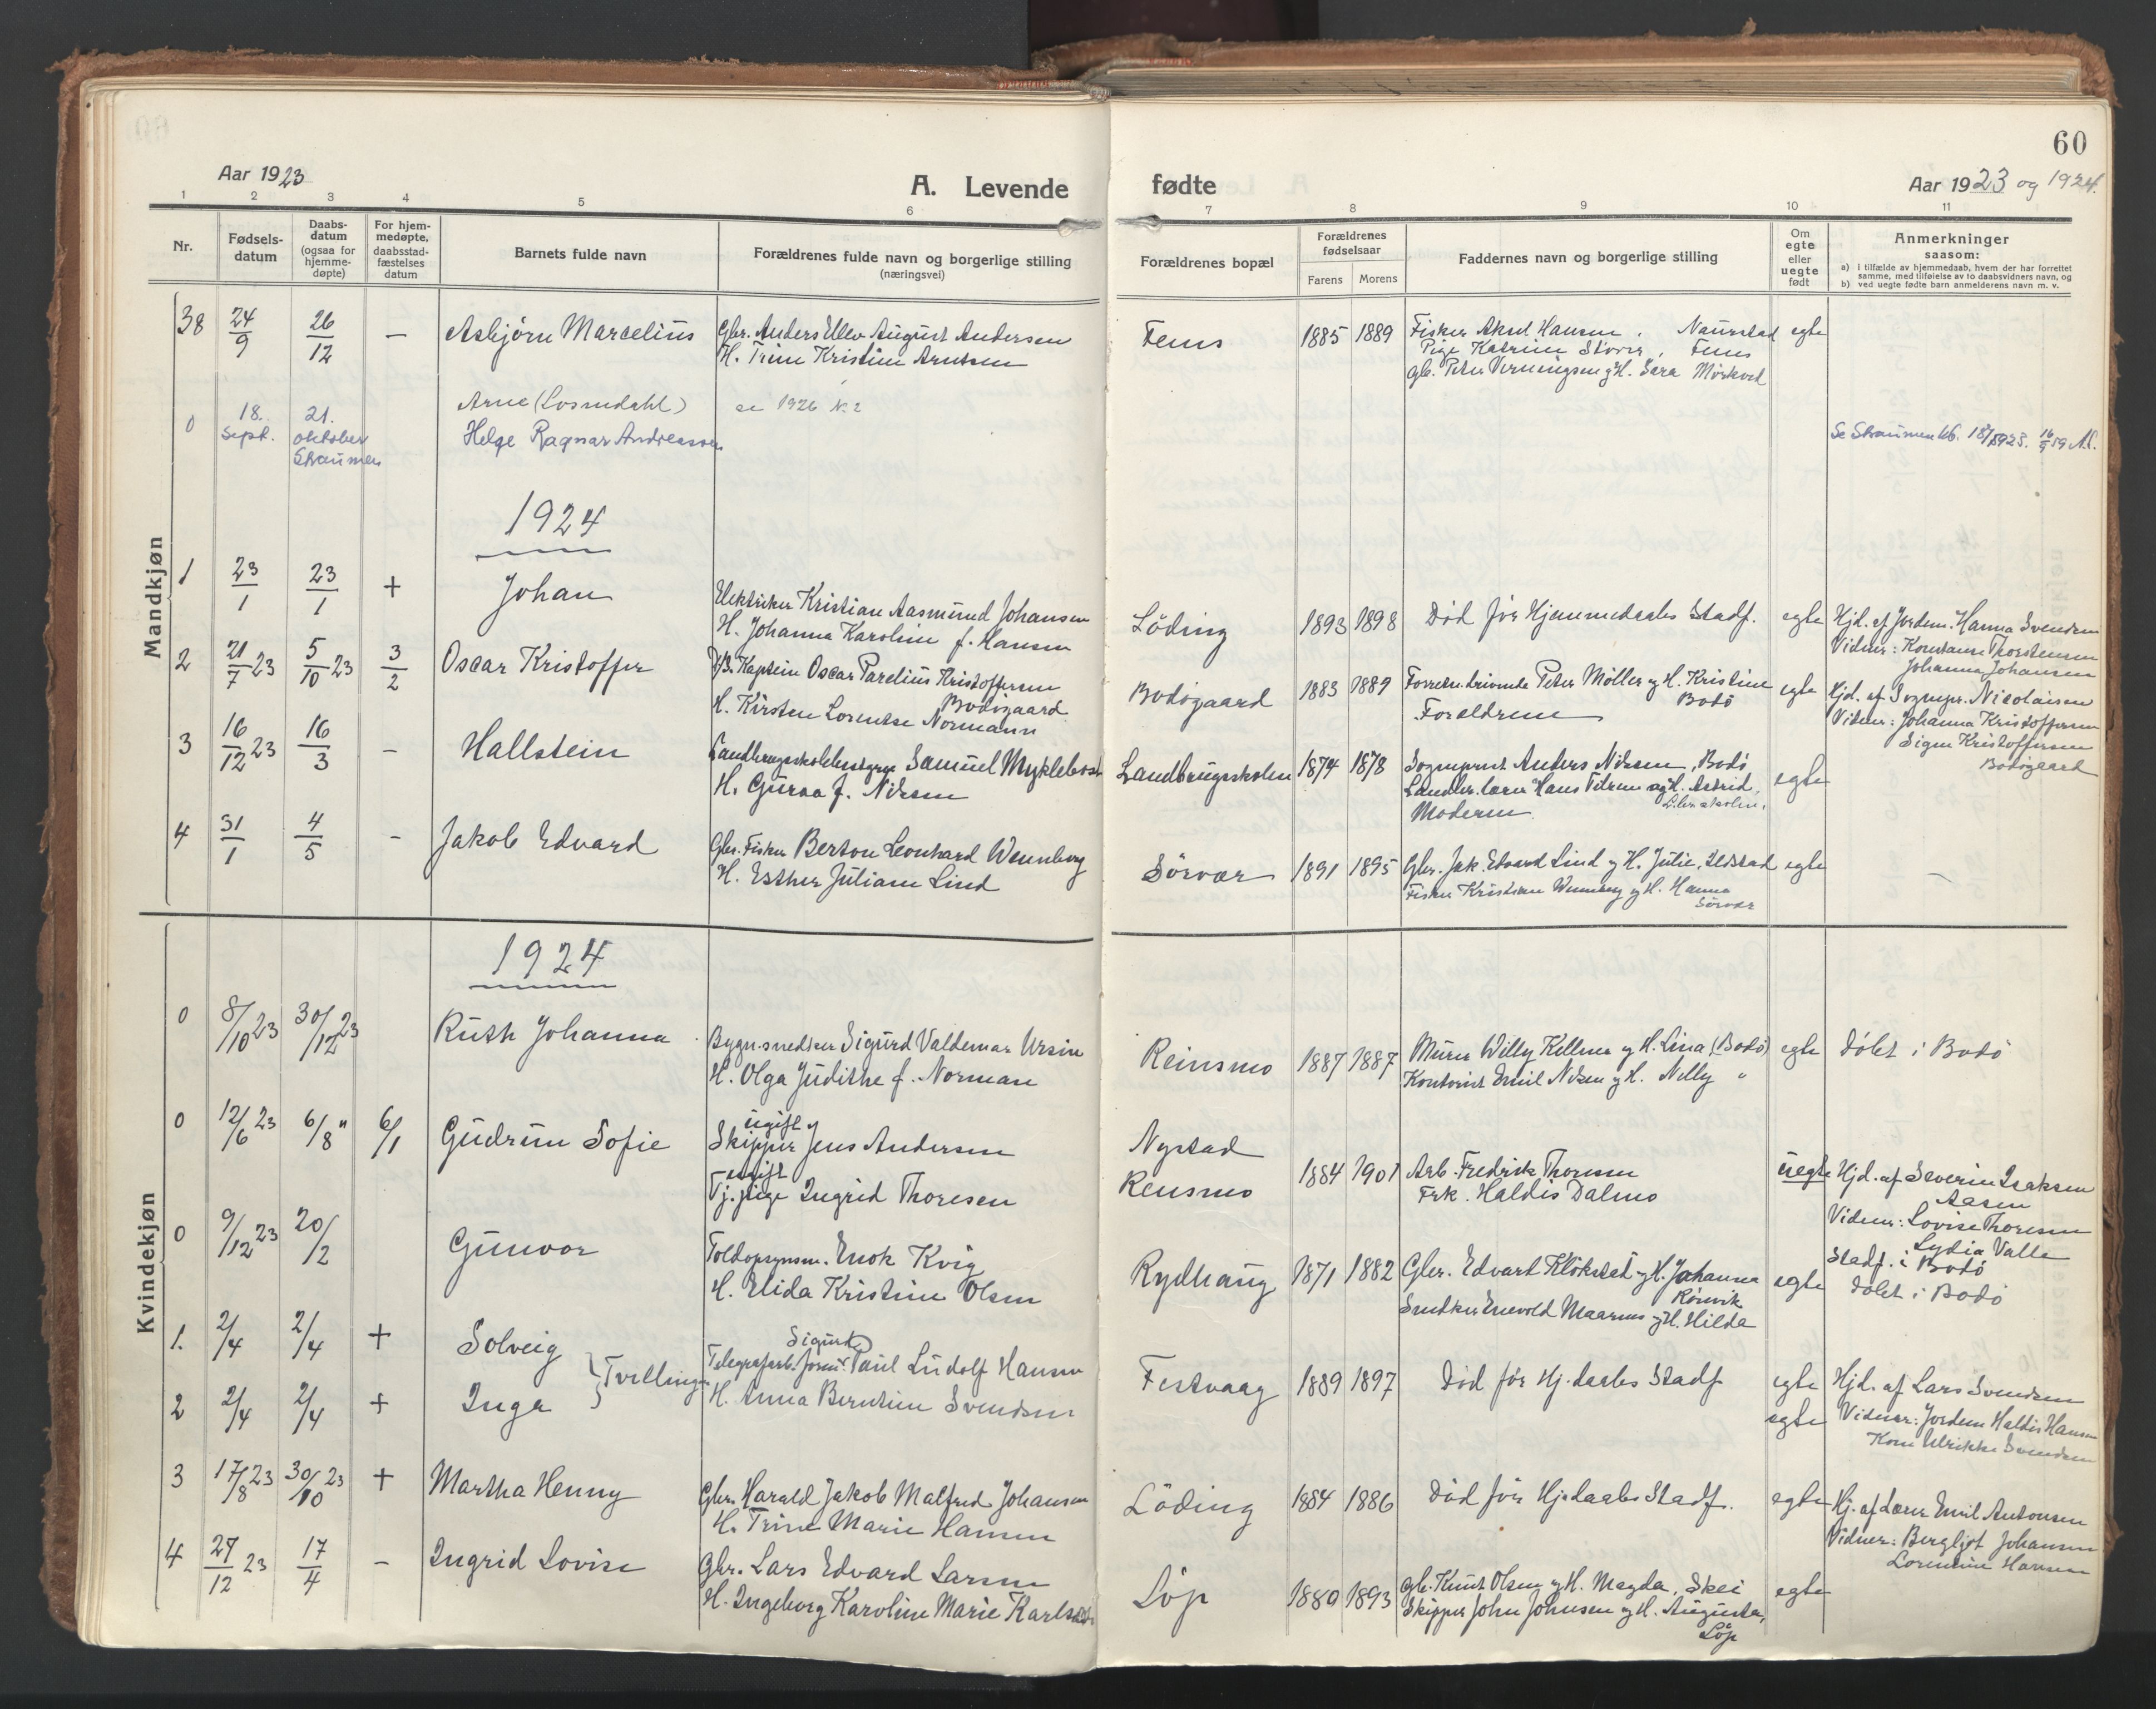 60
Aar 1923
A. Levende fødte
Aar 1923 og 1924.
1 2 3 4 5 6 7 8 9 10 11
Nr.
Fødsels-
datum
Daabs-
datum
(ogsaa for
hjemme-
døpte)
For hjem-
medøpte,
daabsstad-
fæstelses
datum
Barnets fulde navn
Forældrenes fulde navn og borgerlige stilling
(næringsvei)
Forældrenes bopæl
Forældrenes
fødselsaar
Farens Morens
Faddernes navn og borgerlige stilling
Om
egte
eller
uegte
født
Anmerkninger
saasom:
a) i tilfælde av hjemmedaab, hvem der har forrettet
samme, med tilføielse av to daabsvidners navn, og
b) ved uegte fødte barn anmelderens navn m. v.
Mandkjøn
38 24/9 26/12 — Asbjörn Marcelius
Gbr. Anders Ellev August Andersen
H. Trine Kristine Arntsen
Fenes 1885 1889
Fisker Aksel Hansen, Naurstad
Pige Katrine Störer, Fenes
Gb. Peter Verningsen og H. Sara Mörkved
egte
0 18. Sept. 21. oktober Straumen
Arne (Losmdahl) se 1926 N. 2
Helge Ragnar Andreassen
Se Straumen kb. 18/1923. 16/9 59 A.L.
1924
1 23/1 23/1 + Johan
Elektriker Kristian Aasmund Johansen
H. Johanna Karoline f. Hansen
Löding 1893 1898
Död för Hjemmedaabs Stadf.
egte
Hjd. af Jordem. Hanna Svendsen
Vidner: Konstanse Thorstensen
Johanna Johansen
2 21/7 23 5/10 23 3/2 Oscar Kristoffer
D/S. Kaptein Oscar Parelius Kristoffersen
Bodøgaard
H. Kirsten Lorentse Normann
Bodøgaard 1883 1889
Forretn.drivende Peter Möller og H. Kristine
Bodö
Foraldrene
egte
Hjd. af Sognepr. Nicolaisen
Vidner: Johanna Kristoffersen
Signe Kristoffersen
Bodøgaard
3 16/12 23 16/3 — Hallstein
Landbrugsskolebestyrer Samuel Myklebost
H. Guraa f. Nilsen
Landbrugsskolen 1874 1878
Sogneprest Anders Nilsen, Bodö
Landbr. lærer Hans Tilrem og H. Astrid,
L.br.skolen.
Moderen
egte
4 31/1 4/5 — Jakob Edvard
Gbr. Fisker Berton Leonhard Wennberg
H. Esther Juliane Lind
Sörvær 1891 1895
Gbr. Jak. Edvard Lind og H. Julie, Ildstad
Fisker Kristian Wennberg og H. Hanna
Sörvær
egte
—
Kvindekjøn
1924
0 8/10 23 30/12 23 Ruth Johanna
Bygn.snedker Sigurd Valdemar Ursin
H. Olga Judithe f. Norman
Reinsmo 1887 1887
Murer Willy Kellmer og H. Lina (Bodö)
Kontorist Emil Nilsen og H. Nelly "
egte
Döbt i Bodö
0 12/6 23 6/8 " 6/1 Gudrun Sofie
ugift
Skipper Jens Andersen
ugift
Tj.pige Ingrid Thoresen
Nystad
Rensmo 1884 1901
Arb. Fredrik Thoresen
Frk. Haldis Dalmo
uegte
Hjd. af Severin Isaksen
Aasen
Vidner: Lovise Thoresen
Lydia Valle
Stadf. i Bodö
0 9/12 23 20/2 Gunvor
Toldopsynsm. Enok Kvig
H. Elida Kristine Olsen
Rydhaug 1871 1882
Gbr. Edvart Klökstad og H. Johanna
Rönvik
Snedker Enevold Maarnes og H. Hilda
egte
Döbt i Bodö
1. 2/4 2/4 + Solveig } Tvillinger
Sigurd
Telegrafarb. form. Paul Ludolf Hansen
H. Anna Berntine Svendsen
Festvaag 1889 1897
Död för Hj. daabs Stadf
egte
Hjd. af Lars Svendsen
2 2/4 2/4 + Inga
egte
Vidner: Jordem Haldis Hansen
Kone Ulrikke Svendsen
3 17/8 23 30/10 23 + Martha Henny
Gbr. Harald Jakob Malfred Johansen
H. Trine Marie Hansen
Löding 1884 1886
Död för Hj.daabs Stadf.
egte
Hj. af Lærer Emil Antonsen
Vidner: Bergljot Johansen
Lorentine Hansen
4 27/12 23 17/4 — Ingrid Lovise
Gbr. Lars Edvard Larsen
H. Ingeborg Karoline Marie Karlsdtr
Löp 1880 1893
Gb. Knut Olsen og H. Magda, Skei
Skipper John Johnsen og H. Augusta,
Löp
egte